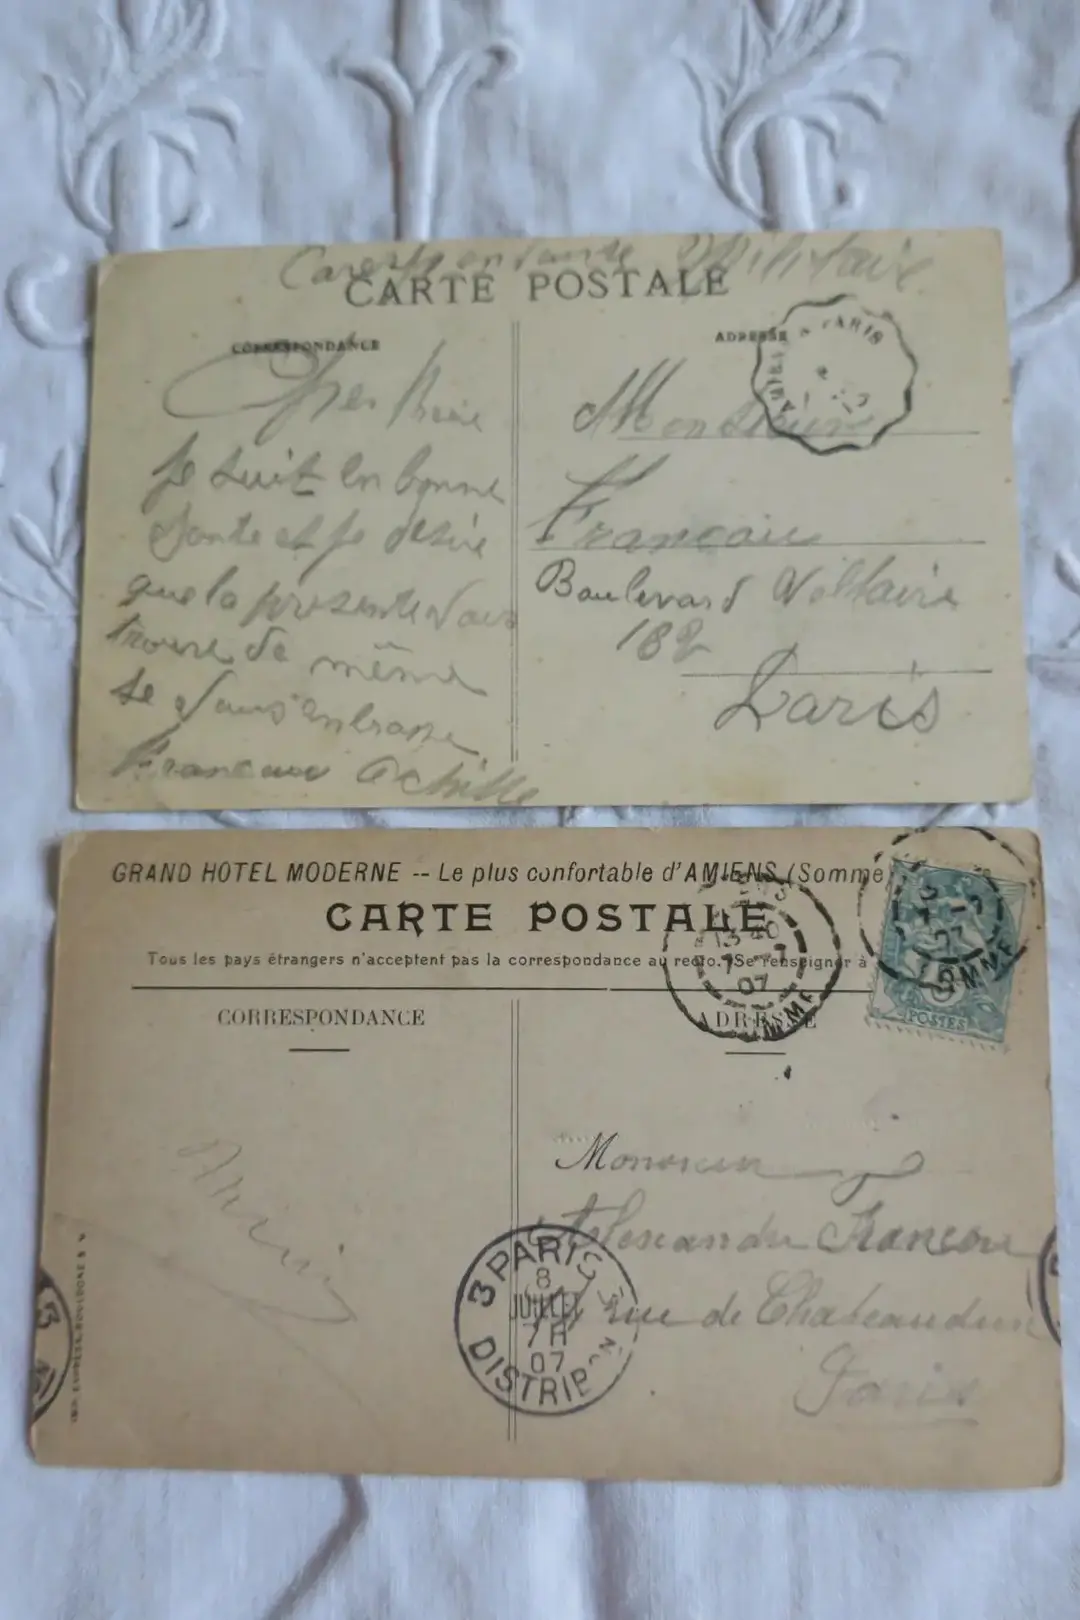 Correspondance Militaire
CARTE POSTALE
CORRESPONDANCE
ADRESSE
AMIENS A PARIS
Cher
Je suit en bonne
Sante et je desire
que la presente Vous
trouve de même
Je Vous enbrasse
Francois Achille
Monsieur
Francois
Boulevard Voltaire
182
Paris
GRAND HOTEL MODERNE -- Le plus confortable d'AMIENS (Somme
CARTE POSTALE
Tous les pays étrangers n'acceptent pas la correspondance au recto. (Se renseigner à
CORRESPONDANCE
ADRESSE
13 40
7 -7
07
SOMME
POSTES
Monsieur
Alexandre Francois
rue de Chateaudun
Paris
3 PARIS 3
8
JUILLET
7 H
07
DISTRIBON